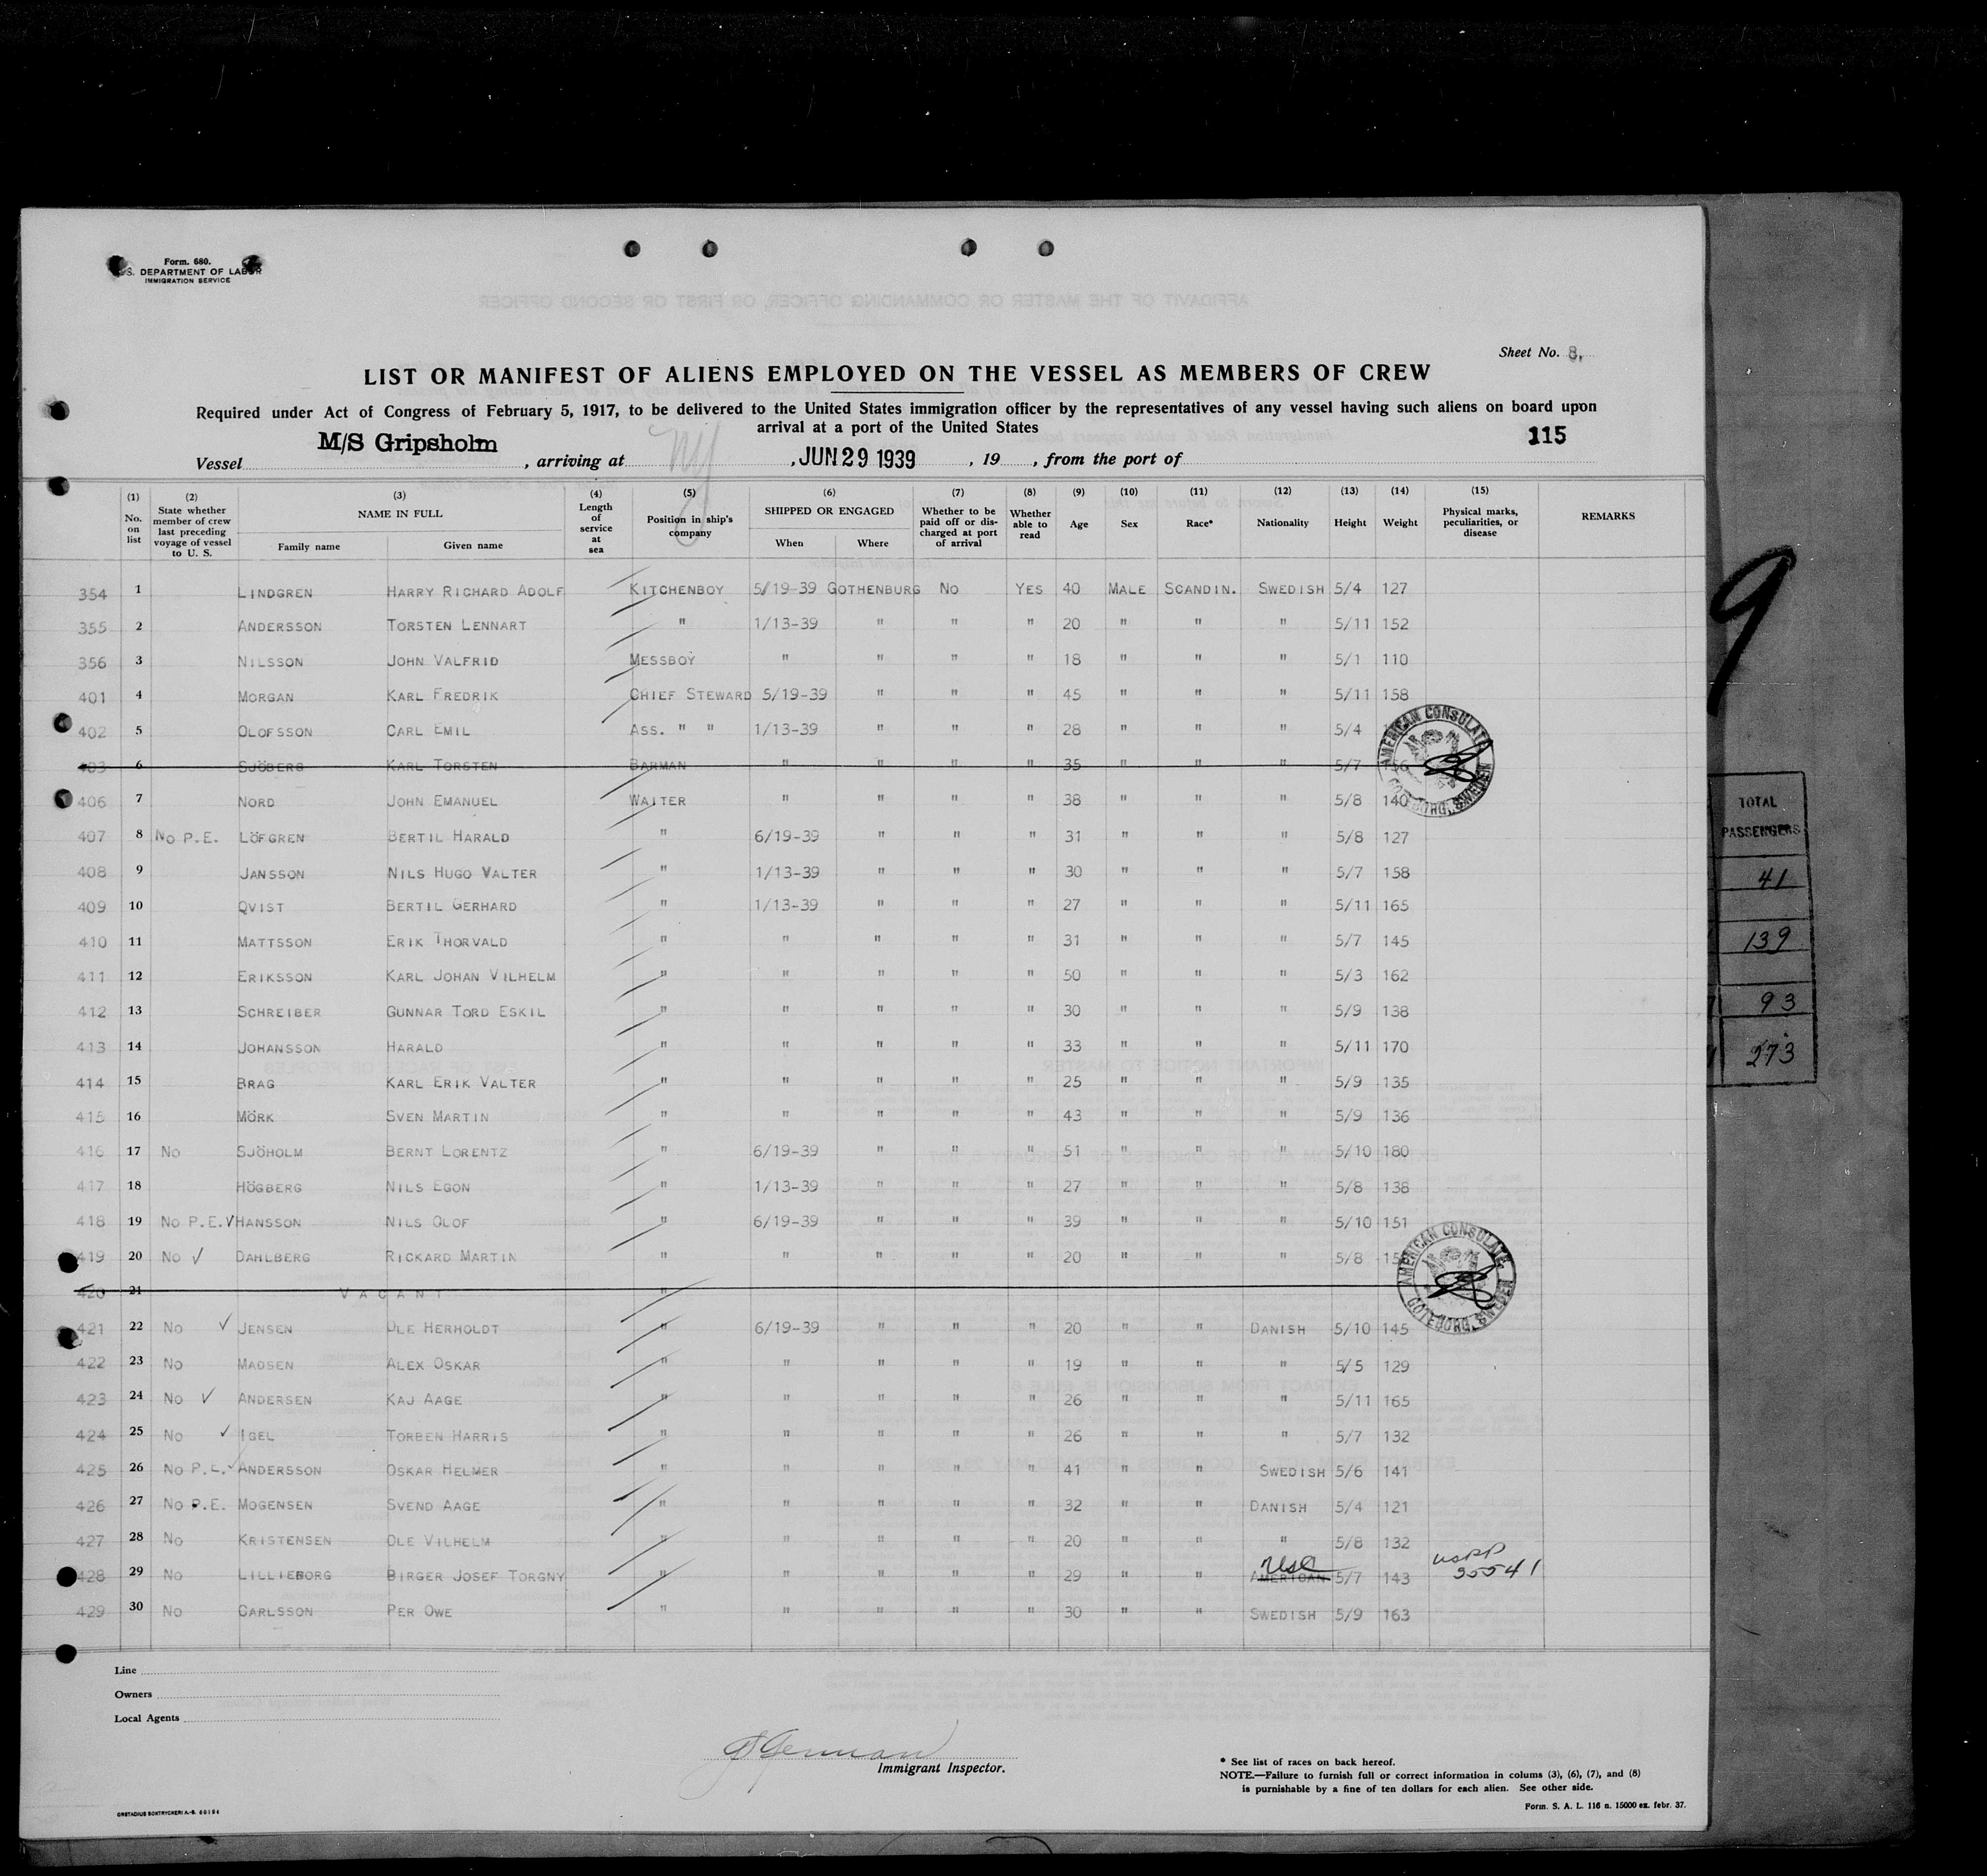 Form. 680.
S. DEPARTMENT OF LABOR
IMMIGRATION SERVICE
Sheet No. 8.
LIST OR MANIFEST OF ALIENS EMPLOYED ON THE VESSEL AS MEMBERS OF CREW
Required under Act of Congress of February 5, 1917, to be delivered to the United States immigration officer by the representatives of any vessel having such aliens on board upon
arrival at a port of the United States
115
Vessel M/S Gripsholm , arriving at NY , JUN 29 1939 , 19 , from the port of
(1) No. on list (2) State whether member of crew last preceding voyage of vessel to U. S. (3) NAME IN FULL Family name Given name (4) Length of service at sea (5) Position in ship's company (6) SHIPPED OR ENGAGED When Where (7) Whether to be paid off or discharged at port of arrival (8) Whether able to read (9) Age (10) Sex (11) Race* (12) Nationality (13) Height (14) Weight (15) Physical marks, peculiarities, or disease REMARKS
354 1 LINDGREN HARRY RICHARD ADOLF KITCHENBOY 5/19-39 GOTHENBURG NO YES 40 MALE SCANDIN. SWEDISH 5/4 127
355 2 ANDERSSON TORSTEN LENNART " 1/13-39 " " " 20 " " " 5/11 152
356 3 NILSSON JOHN VALFRID MESSBOY " " " " 18 " " " 5/1 110
401 4 MORGAN KARL FREDRIK CHIEF STEWARD 5/19-39 " " " 45 " " " 5/11 158
402 5 OLOFSSON CARL EMIL ASS. " " 1/13-39 " " " 28 " " " 5/4
403 6 SJÖBERG KARL TORSTEN BARMAN " " " " 35 " " " 5/7
406 7 NORD JOHN EMANUEL WAITER " " " " 38 " " " 5/8 140
407 8 NO P.E. LÖFGREN BERTIL HARALD " 6/19-39 " " " 31 " " " 5/8 127
408 9 JANSSON NILS HUGO VALTER " 1/13-39 " " " 30 " " " 5/7 158
409 10 QVIST BERTIL GERHARD " 1/13-39 " " " 27 " " " 5/11 165
410 11 MATTSSON ERIK THORVALD " " " " " 31 " " " 5/7 145
411 12 ERIKSSON KARL JOHAN VILHELM " " " " " 50 " " " 5/3 162
412 13 SCHREIBER GUNNAR TORD ESKIL " " " " " 30 " " " 5/9 138
413 14 JOHANSSON HARALD " " " " " 33 " " " 5/11 170
414 15 BRAG KARL ERIK VALTER " " " " " 25 " " " 5/9 135
415 16 MÖRK SVEN MARTIN " " " " " 43 " " " 5/9 136
416 17 NO SJÖHOLM BERNT LORENTZ " 6/19-39 " " " 51 " " " 5/10 180
417 18 HÖGBERG NILS EGON " 1/13-39 " " " 27 " " " 5/8 138
418 19 NO P.E. ✓ HANSSON NILS OLOF " 6/19-39 " " " 39 " " " 5/10 151
419 20 NO ✓ DAHLBERG RICKARD MARTIN " " " " " 20 " " " 5/8
420 21 VACANT "
421 22 NO ✓ JENSEN OLE HERHOLDT " 6/19-39 " " " 20 " " DANISH 5/10 145
422 23 NO MADSEN ALEX OSKAR " " " " " 19 " " " 5/5 129
423 24 NO ✓ ANDERSEN KAJ AAGE " " " " " 26 " " " 5/11 165
424 25 NO ✓ IGEL TORBEN HARRIS " " " " " 26 " " " 5/7 132
425 26 NO P.E. ✓ ANDERSSON OSKAR HELMER " " " " " 41 " " SWEDISH 5/6 141
426 27 NO P.E. MOGENSEN SVEND AAGE " " " " " 32 " " DANISH 5/4 121
427 28 NO KRISTENSEN OLE VILHELM " " " " " 20 " " " 5/8 132
428 29 NO LILLIEBORG BIRGER JOSEF TORGNY " " " " " 29 " " AMERICAN USC 5/7 143 USPP 55541
429 30 NO CARLSSON PER OWE " " " " " 30 " " SWEDISH 5/9 163
AMERICAN CONSULATE
GÖTEBORG, SWEDEN
AMERICAN CONSULATE
GÖTEBORG, SWEDEN
9
TOTAL
PASSENGERS
41
139
93
273
Line
Owners
Local Agents
Immigrant Inspector.
* See list of races on back hereof.
NOTE.—Failure to furnish full or correct information in colums (3), (6), (7), and (8)
is purnishable by a fine of ten dollars for each alien. See other side.
Form. S. A. L. 116 n. 15000 ex. febr. 37.